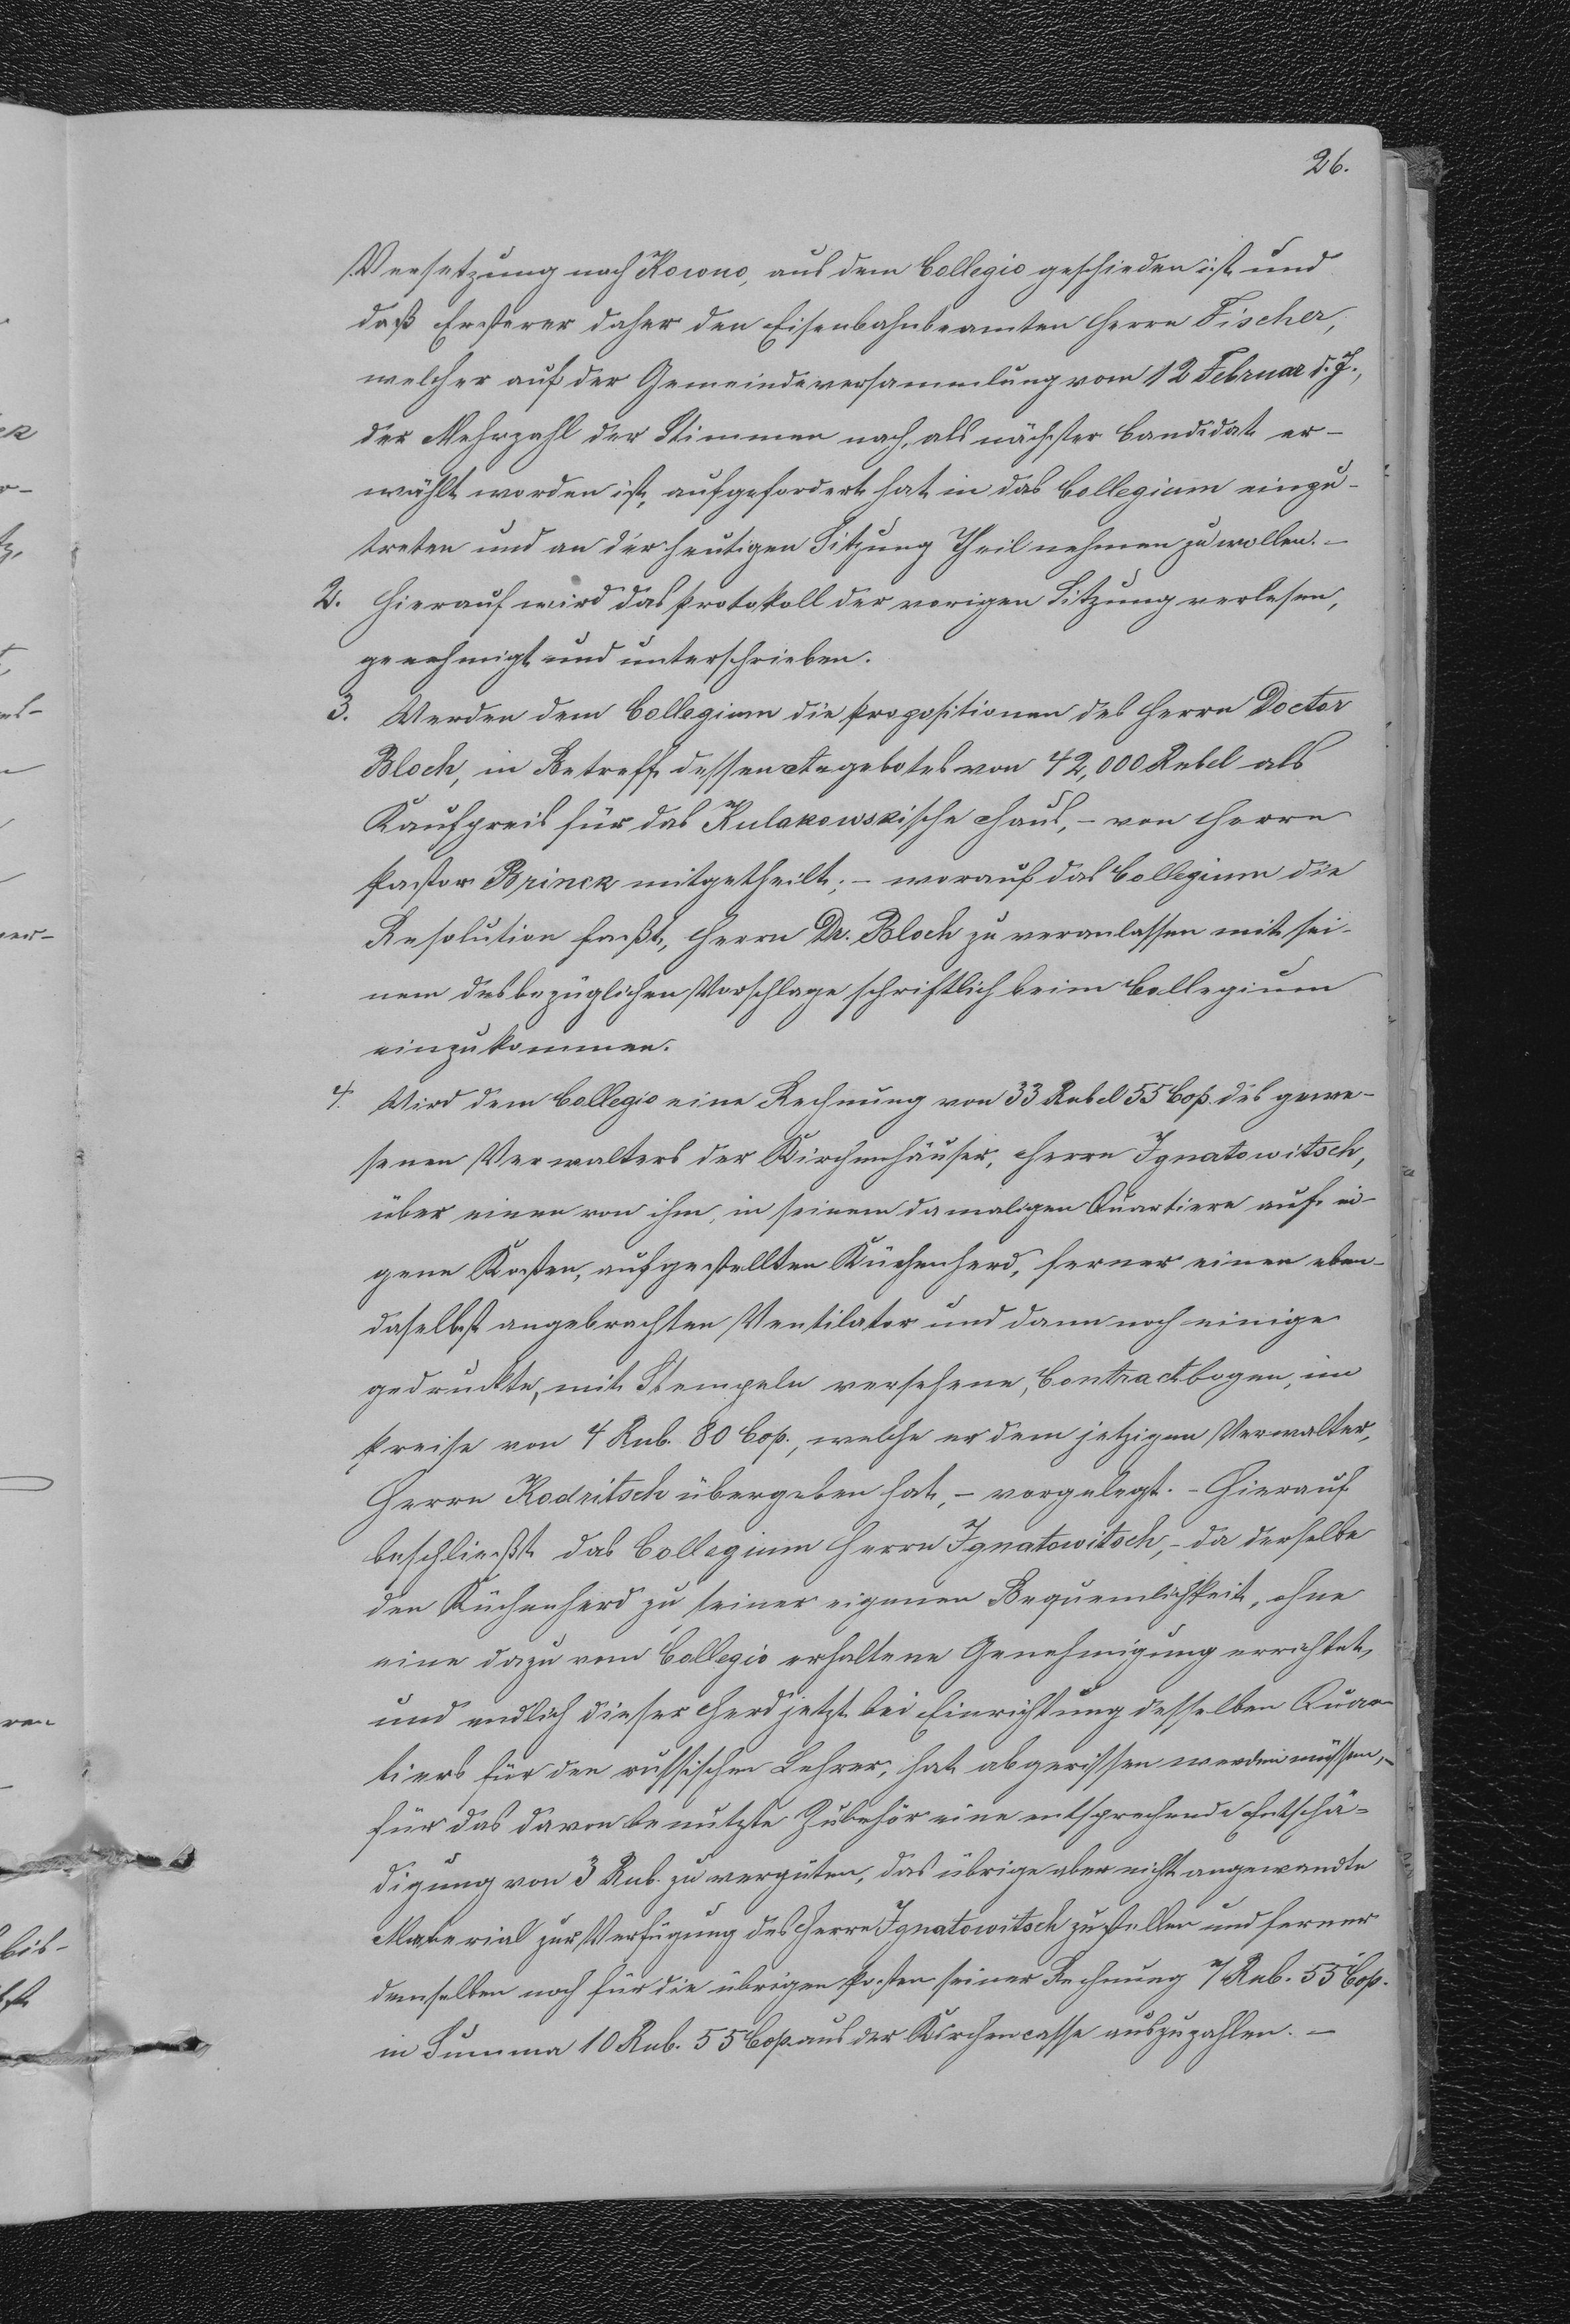 26.
Versetzung nach Kowno, aus dem Collegio geschieden ist und
daß Ersterer daher den Eisenbahnbeamten Herrn Fischer,
welcher auf der Gemeindeversammlung vom 12 Februar d. J.,
der Mehrzahl der Stimmen nach, als nächster Candidat er-
wählt worden ist, aufgefordert hat in das Collegium einzu-
treten und an der heutigen Sitzung Theil nehmen zu wollen. –
2. Hierauf wird das Protokoll der vorigen Sitzung verlesen,
genehmigt und unterschrieben.
3. Werden dem Collegium die Propositionen des Herrn Doctor
Bloch, in Betreff dessen Angebotes von 42,000 Rubel als
Kaufpreis für das Kulakowskische Haus, – von Herrn
Pastor Brinck mitgetheilt; – worauf das Collegium die
Resolution faßt, Herrn Dr. Bloch zu veranlassen mit sei-
nem desbezüglichen Vorschlage schriftlich beim Collegium
einzukommen.
4. Wird dem Collegio eine Rechnung von 33 Rubel 55 Cop. des gewe-
senen Verwalters der Kirchenhäuser, Herrn Ignatowitsch,
über einen von ihm, in seinem damaligen Quartiere auf ei-
gene Kosten, aufgestellten Küchenherd, ferner einen eben-
daselbst angebrachten Ventilator und dann noch einige
gedruckte, mit Stempeln versehene, Contractbogen, im
Preise von 4 Rub. 80 Cop., welche er dem jetzigen Verwalter,
Herrn Kodritsch übergeben hat, – vorgelegt. – Hierauf
beschließt das Collegium Herrn Ignatowitsch, – da derselbe
den Küchenherd zu seiner eigenen Bequemlichkeit, ohne
eine dazu vom Collegio erhaltene Genehmigung errichtet,
und endlich dieser Herd jetzt bei Einrichtung desselben Quar-
tiers für den russischen Lehrer, hat abgerissen werden müssen, –
für das davon benutzte Zubehör eine entsprechende Entschä-
digung von 3 Rub. zu vergüten, das übrige aber nicht angewandte
Material zur Verfügung des Herrn Ignatowitsch zu stellen und ferner
demselben noch für die übrigen Posten seiner Rechnung 7 Rub. 55 Cop.
in Summa 10 Rub. 55 Cop. aus der Kirchencasse auszuzahlen. –